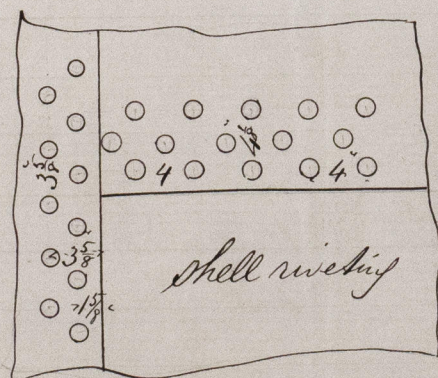 3 5/8"
4 1/8"
4
4"
3 5/8"
1 5/8"
shell riveting